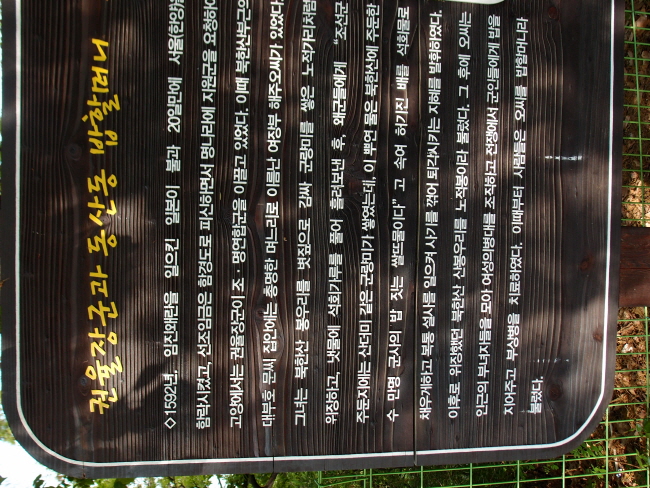 권율장군과 동산동 밥할머니
◇1592년, 임진왜란을 일으킨 일본이 불과 20일만에 서울(한양)을
함락시켰고, 선조임금은 함경도로 피신하면서 명나라에 지원군을 요청하여
고양에서는 권율장군이 조·명연합군을 이끌고 있었다. 이때 북한산부근의
대부호 문씨 집안에는 총명한 며느리로 이름난 여장부 해주오씨가 있었다.
그녀는 북한산 봉우리를 볏짚으로 감싸 군량미를 쌓은 노적가리처럼
위장하고, 냇물에 석회가루를 풀어 흘려보낸 후, 왜군들에게 "조선군
주둔지에는 산더미 같은 군량미가 쌓였는데, 이 뿌연 물은 북한산에 주둔한
수 만명 군사의 밥 짓는 쌀뜨물이다" 고 속여 허기진 배를 석회물로
채우게하고 복통 설사를 일으켜 사기를 꺾어 퇴각시키는 지혜를 발휘하였다.
이후로 위장했던 북한산 산봉우리를 노적봉이라 불렀다. 그 후에 오씨는
인근의 부녀자들을 모아 여성의병대를 조직하고 전쟁에서 군인들에게 밥을
지어주고 부상병을 치료하였다. 이때부터 사람들은 오씨를 밥할머니라
불렀다.